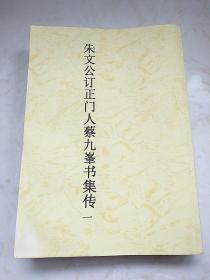 朱文公订正门人蔡九峯书集传 一